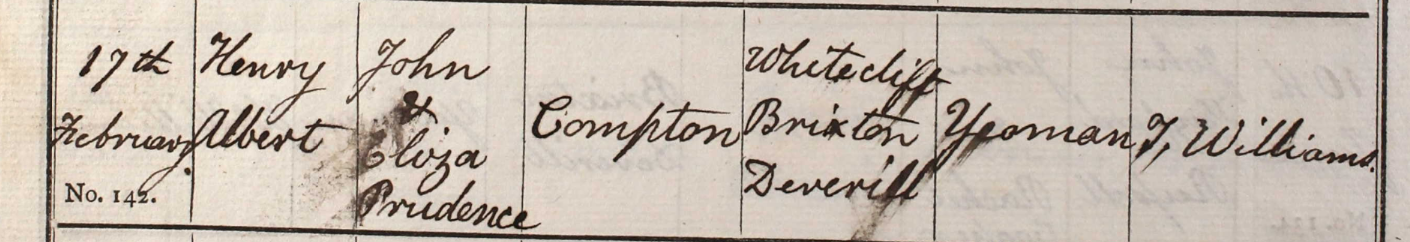 17th
February.
No. 142.
Henry
Albert
John
&
Eliza
Prudence
Compton
Whitecliff
Brixton
Deverill
Yeoman
J, Williams.